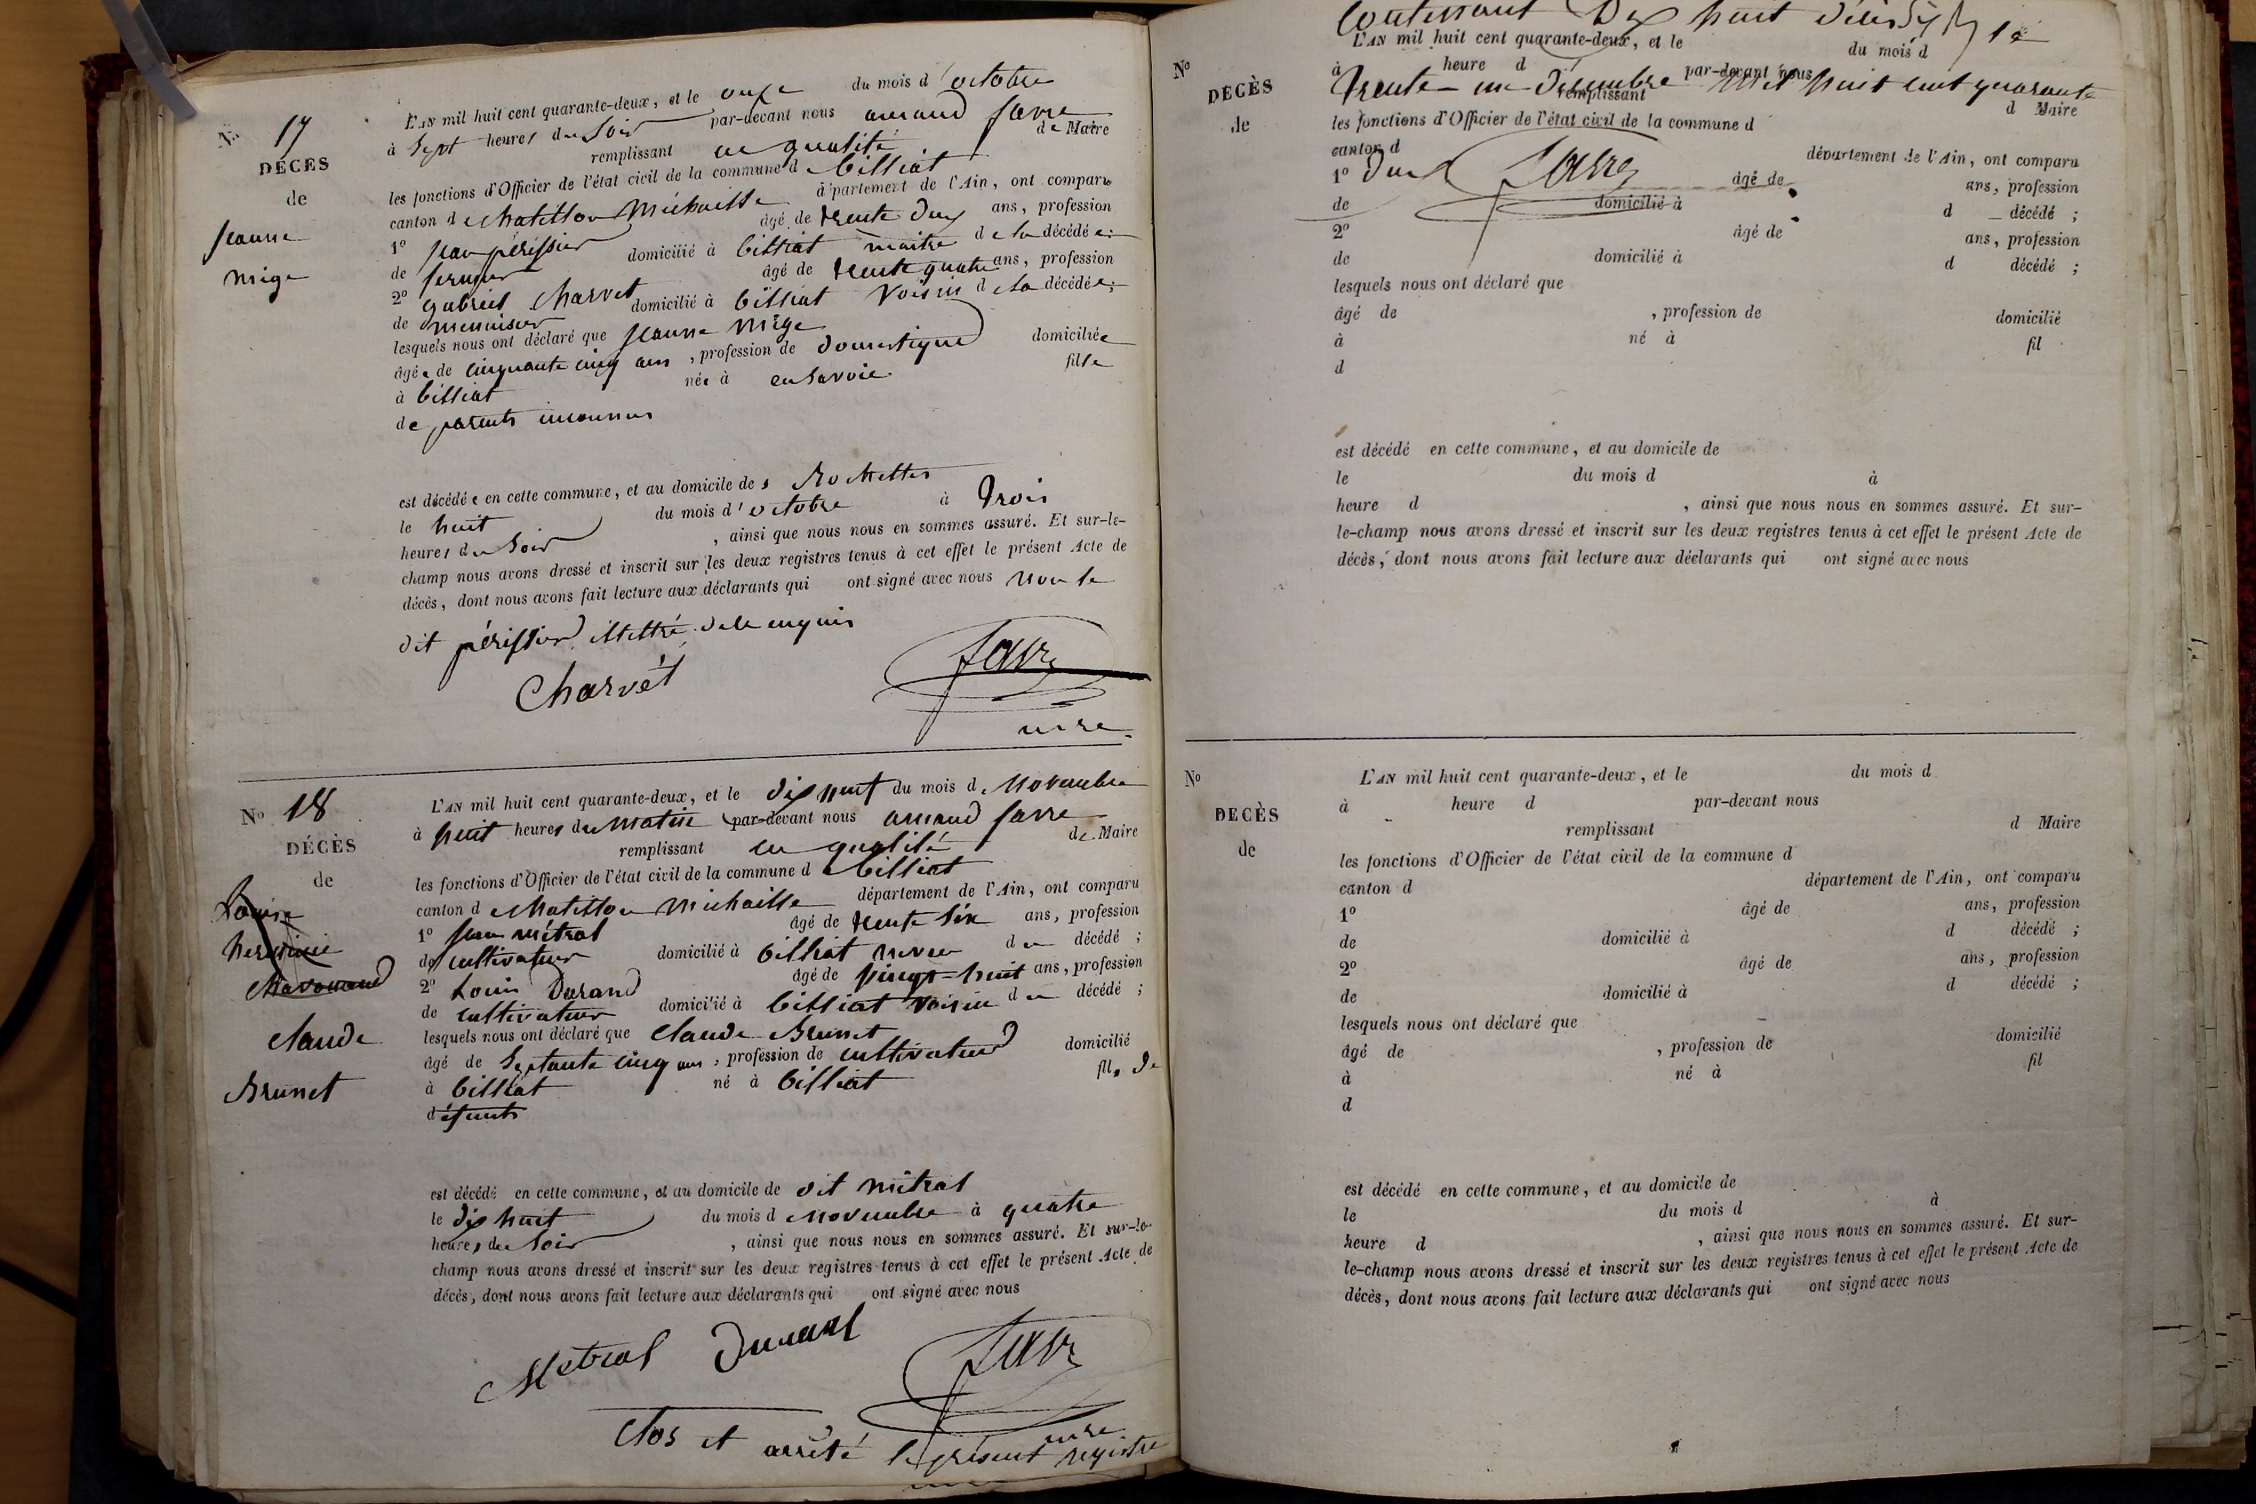 No 17
DÉCES
de
Jeanne
Mige
L'AN mil huit cent quarante-deux, et le onze du mois d'octobre
à Sept heures du Soir par-devant nous armand favre
remplissant en qualité de Maire
les fonctions d'Officier de l'état civil de la commune d billiat
canton de Chatillon Michaille département de l'Ain, ont comparu
1º Jean périssier âgé de trente deux ans, profession
de fermier domicilié à billiat maitre de la décédée;
2º gabriel Charvet âgé de trente quatre ans, profession
de menuisier domicilié à billiat voisin de la décédée;
lesquels nous ont déclaré que Jeanne Mige
âgée de cinquante cinq ans, profession de domestique domiciliée
à billiat née à en Savoie fille
de parents inconnus
est décédée en cette commune, et au domicile des Rochettes
le huit du mois d'octobre à trois
heures du Soir, ainsi que nous nous en sommes assuré. Et sur-le-
champ nous avons dressé et inscrit sur les deux registres tenus à cet effet le présent Acte de
décès, dont nous avons fait lecture aux déclarants qui ont signé avec nous non le
dit périssier illettré de ce enquis
Charvet
favre
mre
No 18
DÉCÈS
de
Louise
Claude
Brunet
L'AN mil huit cent quarante-deux, et le dix neuf du mois de Novembre
à huit heures du Matin par-devant nous armand favre
remplissant en qualité de Maire
les fonctions d'Officier de l'état civil de la commune d billiat
canton de Chatillon Michaille département de l'Ain, ont comparu
1º Jean métral âgé de trente Six ans, profession
de cultivateur domicilié à billiat neveu du décédé;
2º Louis Durand âgé de vingt-huit ans, profession
de cultivateur domicilié à billiat voisin du décédé;
lesquels nous ont déclaré que Claude Brunet
âgé de Septante cinq ans, profession de cultivateur domicilié
à billiat né à billiat fils de
défunts
est décédé en cette commune, et au domicile de dit métral
le dix huit du mois de Novembre à quatre
heures du Soir, ainsi que nous nous en sommes assuré. Et sur-le-
champ nous avons dressé et inscrit sur les deux registres tenus à cet effet le présent Acte de
décès, dont nous avons fait lecture aux déclarants qui ont signé avec nous
Métral Durand favre
mre
Clos et arrêté le présent registre
Contenant Dix huit décès
No
DÉCÈS
de
L'AN mil huit cent quarante-deux, et le du mois d
à heure d par-devant nous
trente-un Décembre mil huit cent quarante
remplissant d Maire
les fonctions d'Officier de l'état civil de la commune d
canton d département de l'Ain, ont comparu
deux favre
1º âgé de ans, profession
de domicilié à d décédé ;
2º âgé de ans, profession
de domicilié à d décédé ;
lesquels nous ont déclaré que
âgé de , profession de domicilié
à né à fil
d
est décédé en cette commune, et au domicile de
le du mois d à
heure d , ainsi que nous nous en sommes assuré. Et sur-
le-champ nous avons dressé et inscrit sur les deux registres tenus à cet effet le présent Acte de
décès, dont nous avons fait lecture aux déclarants qui ont signé avec nous
No
DÉCÈS
de
L'AN mil huit cent quarante-deux, et le du mois d
à heure d par-devant nous
remplissant d Maire
les fonctions d'Officier de l'état civil de la commune d
canton d département de l'Ain, ont comparu
1º âgé de ans, profession
de domicilié à d décédé ;
2º âgé de ans, profession
de domicilié à d décédé ;
lesquels nous ont déclaré que
âgé de , profession de domicilié
à né à fil
d
est décédé en cette commune, et au domicile de
le du mois d à
heure d , ainsi que nous nous en sommes assuré. Et sur-
le-champ nous avons dressé et inscrit sur les deux registres tenus à cet effet le présent Acte de
décès, dont nous avons fait lecture aux déclarants qui ont signé avec nous